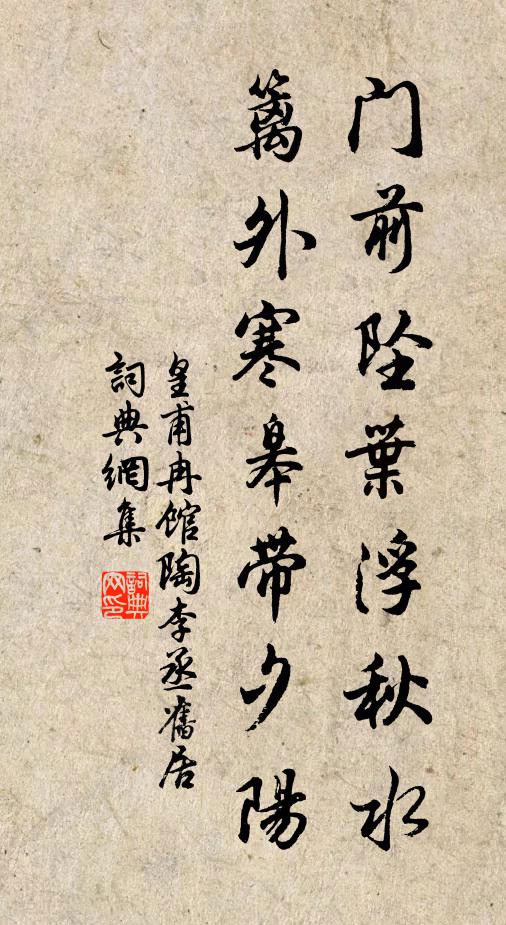 门前坠葉浮秋水
籬外寒皋带夕陽
皇甫冉馆陶李丞舊居
詞典網集
詞典网印